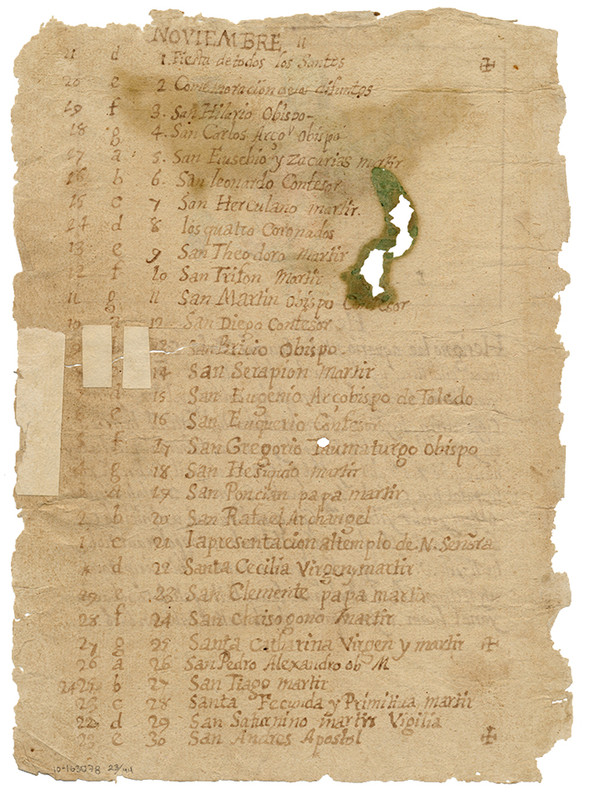 NOVIEMBRE 11
21 d 1. Fiesta de todos los Santos ✠
20 e 2. Comemoracion de los difuntos
19 f 3. San Hilario Obispo
18 g 4. San Carlos Obispo
17 a 5. San Eusebio y Zacarias martir
16 b 6. San leonardo Confesor
15 c 7 San Herculano martir.
14 d 8 los quatro Coronados
13 e 9 San Theodoro Martir
12 f 10 San Trifon Martir
11 g 11 San Martin Obispo Confesor
10 a 12 San Diego Confesor
b San Bricio Obispo
14 San Serapion martir
d 15 San Eugenio Arcobispo de Toledo
6 e 16 San Confesor
5 f 17 San Gregorio Taumaturgo Obispo
g 18 San martir
a 19 San Poncian papa martir
2 b 20 San Rafael Archangel
1 c 21 la presentacion al templo de N. Señora
d 22 Santa Cecilia Virgen y martir
29 e 23 San Clemente papa martir
28 f 24 San Crisogono Martir
27 g 25 Santa Catharina Virgen y martir ✠
26 a 26 San Pedro Alexandro obpo M
2425 b 27 San Tiago martir
23 c 28 Santa Fecunda y Primitiva martir
22 d 29 San Saturnino martir Vigilia
e 30 San Andres Apostol ✠
10-163078 23/44